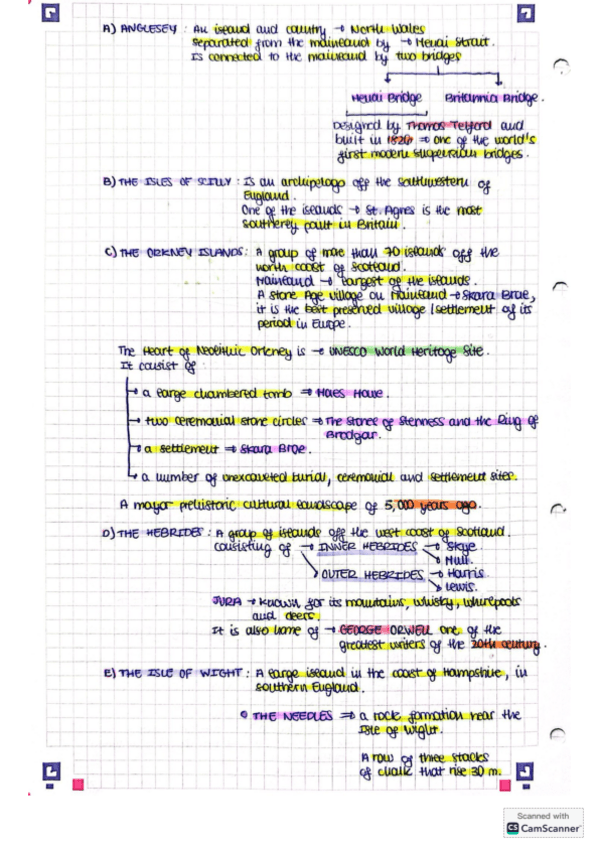 A) ANGLESEY : An island and country → North Wales
separated from the mainland by → Menai Strait.
Is connected to the mainland by two bridges
Menai Bridge Britannia Bridge.
Designed by Thomas Telford and
built in 1826 ⇒ one of the world's
first modern suspension bridges.
B) THE ISLES OF SCILLY : Is an archipelago off the southwestern of
England.
One of the islands → St. Agnes is the most
southernly point in Britain.
C) THE ORKNEY ISLANDS : A group of more than 70 islands off the
north coast of Scotland.
Mainland → Largest of the islands.
A Stone Age village on Mainland → Skara Brae,
it is the best preserved village / settlement of its
period in Europe.
The Heart of Neolithic Orkney is → UNESCO World Heritage Site.
It consist of
→ a large chambered tomb ⇒ Maes Howe.
→ two ceremonial stone circles ⇒ The Stones of Stenness and the Ring of
Brodgar.
→ a settlement ⇒ Skara Brae.
→ a number of unexcavated burial, ceremonial and settlement sites.
A mayor prehistoric cultural landscape of 5,000 years ago.
D) THE HEBRIDES : A group of islands off the west coast of Scotland.
consisting of → INNER HEBRIDES → Skye
→ Mull.
→ OUTER HEBRIDES → Harris
→ Lewis.
JURA → known for its mountains, whisky, whirlpools
and deers.
It is also home of → GEORGE ORWELL one of the
greatest writers of the 20th century.
E) THE ISLE OF WIGHT : A large island in the coast of Hampshire, in
southern England.
THE NEEDLES ⇒ a rock formation near the
Isle of Wight.
A row of three stacks
of chalk that rise 30 m.
Scanned with
CS CamScanner